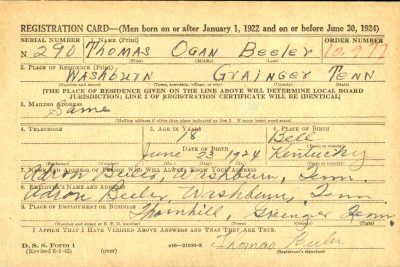 REGISTRATION CARD—(Men born on or after January 1, 1922 and on or before June 30, 1924)
SERIAL NUMBER 1. NAME (Print) ORDER NUMBER
N 290 Thomas Ogan Beeler
(First) (Middle) (Last)
2. PLACE OF RESIDENCE (Print)
Washburn Grainger Tenn
(Number and street) (Town, township, village, or city) (County) (State)
[THE PLACE OF RESIDENCE GIVEN ON THE LINE ABOVE WILL DETERMINE LOCAL BOARD
JURISDICTION; LINE 2 OF REGISTRATION CERTIFICATE WILL BE IDENTICAL]
3. MAILING ADDRESS
Same
[Mailing address if other than place indicated on line 2. If same insert word same]
4. TELEPHONE 5. AGE IN YEARS 6. PLACE OF BIRTH
18 Bell
DATE OF BIRTH (Town or county)
June 23 1924 Kentucky
(Exchange) (Number) (Mo.) (Day) (Yr.) (State or country)
7. NAME AND ADDRESS OF PERSON WHO WILL ALWAYS KNOW YOUR ADDRESS
Beeler, Washburn, Tenn
8. EMPLOYER'S NAME AND ADDRESS
Beeler, Washburn, Tenn
9. PLACE OF EMPLOYMENT OR BUSINESS
Thornhill, Grainger Tenn.
(Number and street or R. F. D. number) (Town) (County) (State)
I AFFIRM THAT I HAVE VERIFIED ABOVE ANSWERS AND THAT THEY ARE TRUE.
D. S. S. Form 1
(Revised 6-1-42) (over) Thomas Beeler
(Registrant's signature)